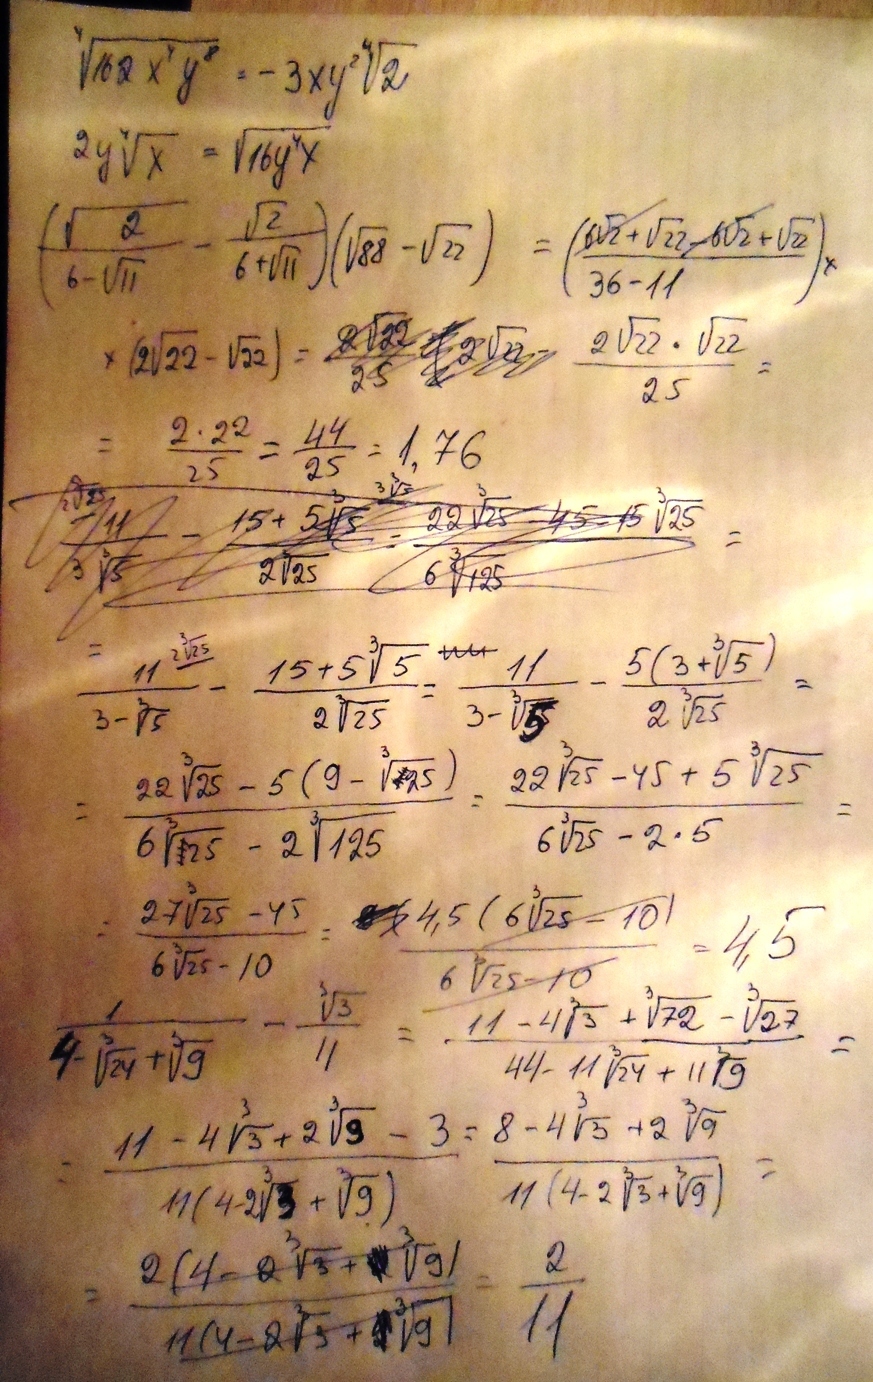 ⁴√(162x⁴y⁸) = -3xy² ⁴√2
2y ⁴√x = √(16y⁴x)
(√2/(6-√11) - √2/(6+√11))(√88 - √22) = ((6√2+√22-6√2+√22)/(36-11))×
×(2√22 - √22) = (2√22·√22)/25 =
= (2·22)/25 = 44/25 = 1,76
= 11/(3-³√5) - (15+5³√5)/(2³√25) = 11/(3-³√5) - 5(3+³√5)/(2³√25) =
= (22³√25 - 5(9-³√25))/(6³√25 - 2³√125) = (22³√25 - 45 + 5³√25)/(6³√25 - 2·5) =
= (27³√25 - 45)/(6³√25 - 10) = 4,5(6³√25 - 10)/(6³√25 - 10) = 4,5
1/(4-³√24+³√9) - ³√3/11 = (11 - 4³√3 + ³√72 - ³√27)/(44 - 11³√24 + 11³√9) =
= (11 - 4³√3 + 2³√9 - 3)/(11(4-2³√3+³√9)) = (8 - 4³√3 + 2³√9)/(11(4-2³√3+³√9)) =
= 2(4-2³√3+³√9)/(11(4-2³√3+³√9)) = 2/11